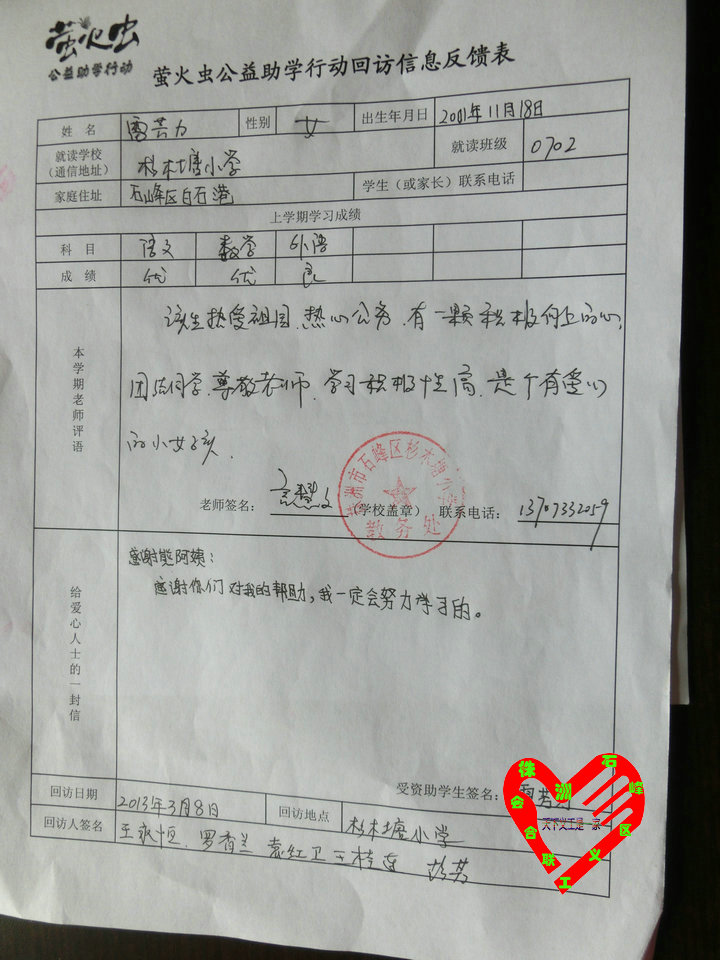 萤火虫
公益助学行动
萤火虫公益助学行动回访信息反馈表
姓名 雷芸力 性别 女 出生年月日 2001年11月18日
就读学校（通信地址） 杉木塘小学 就读班级 0702
家庭住址 石峰区白石港 学生（或家长）联系电话
上学期学习成绩
科目 语文 数学 外语
成绩 优 优 良
本学期老师评语
该生热爱祖国、热心公务、有一颗积极向上的心,
团结同学、尊敬老师、学习积极性高、是个有爱心
的小女孩.
老师签名： （学校盖章） 联系电话： 13707332059
株洲市石峰区杉木塘小学
教务处
给爱心人士的一封信
感谢熊阿姨：
感谢你们对我的帮助，我一定会努力学习的。
受资助学生签名：
回访日期 2013年3月8日 回访地点 杉木塘小学
回访人签名 王永恒、罗香兰 袁红卫 王桂 彭芳
株洲石峰区义工联合会
天下义工是一家